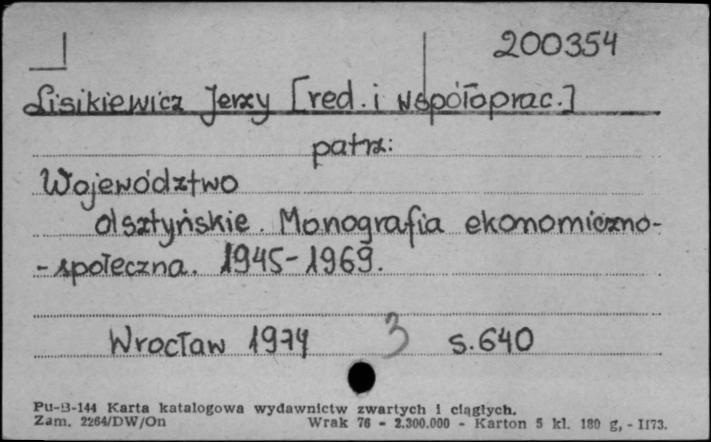 200354
Lisikiewicz Jerzy [red. i współoprac.]
patrz:
Województwo
olsztyńskie. Monografia ekonomiczno-
-społeczna. 1945-1969.
Wrocław 1974 3 s. 640
Pu-B-144 Karta katalogowa wydawnictw zwartych i ciągłych.
Zam. 2264/DW/On Wrak 76 - 2.300.000 - Karton 5 kl. 180 g, - II73.